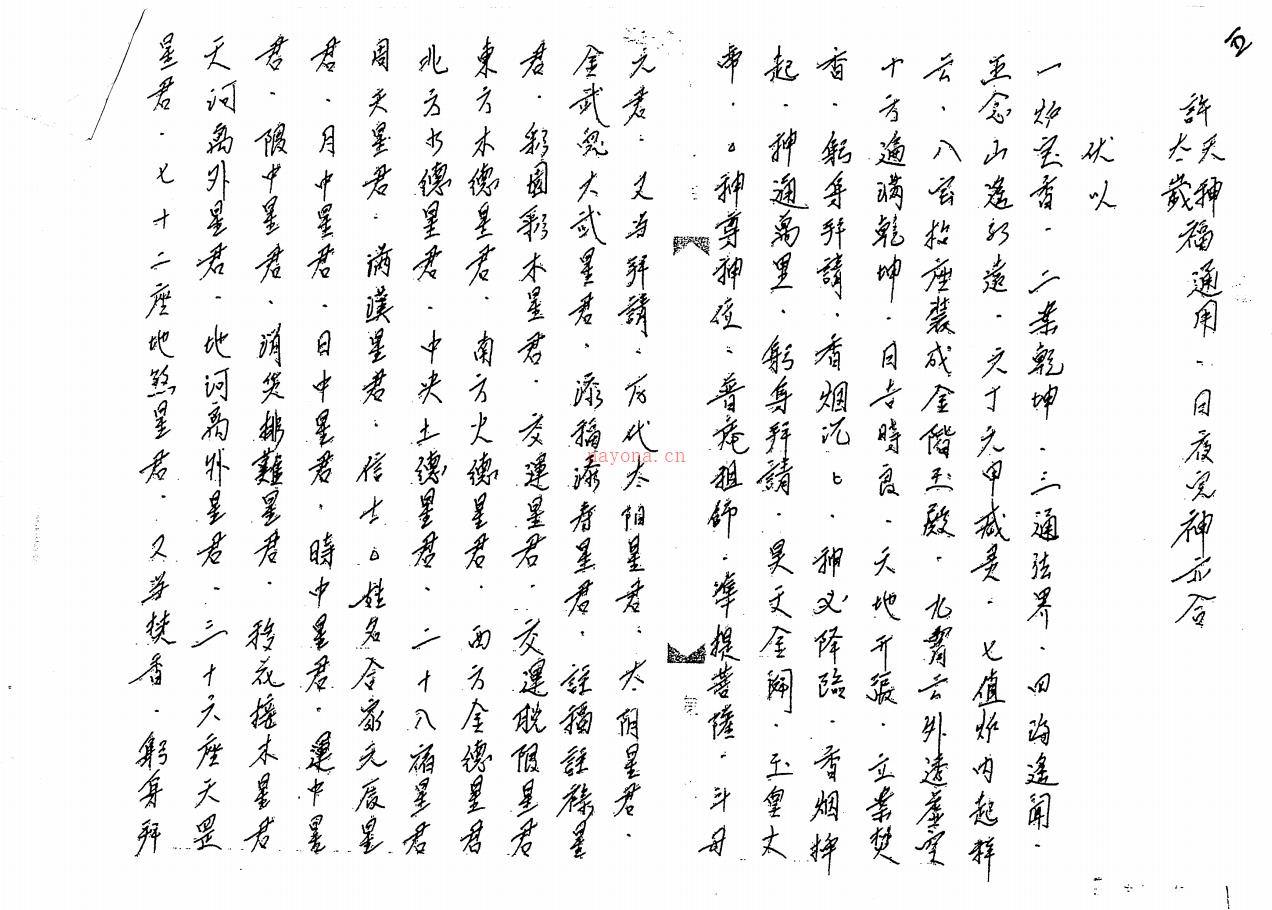 五
許天神福通用．日夜完神亦合
太歲
伏以
一炉宝香．二案乾坤．三通法界．四海遙聞．
五念山遙水遠．六丁六甲咸灵．七值炉内起祥
云．八宝抬座装成金階玉殿．九霄云外透虚空
十方遍满乾坤．日吉時良．天地开張．立案焚
香．躬身拜請．香烟沉〻．神必降臨．香烟捧
起．神通萬里．躬身拜請．昊天金闕．玉皇大
帝．〇神尊神位．普庵祖師．準提菩薩．斗母
元君．又当拜請．太阳星君．太阴星君．
金武大武星君．添福添寿星君．註福註祿星
君．移園移木星君．交運星君．交運脱限星君
東方木德星君．南方火德星君．西方金德星君
北方水德星君．中央土德星君．二十八宿星君
周天星君．满漢星君．信士〇姓名合家元辰星
君．月中星君．日中星君．時中星君．運中星
君．限中星君．消災排難星君．移花接木星君
天河离外星君．地河离外星君．三十六座天罡
星君．七十二座地煞星君．又当焚香．躬身拜
nayona.cn